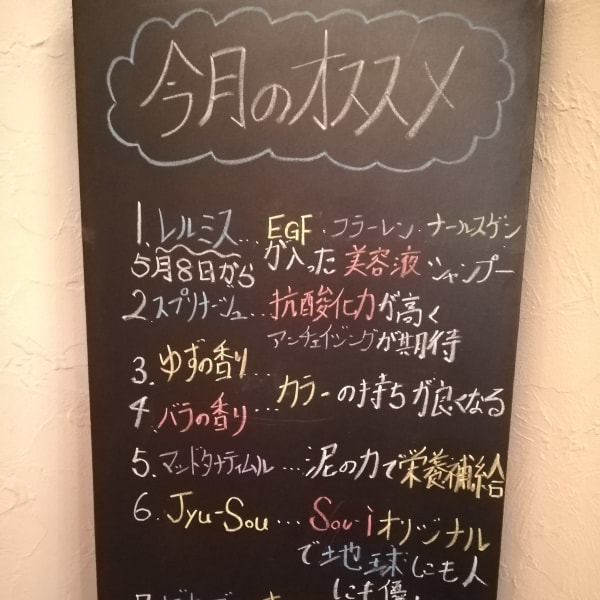 今月のオススメ
1. レルミス… EGF・コラーレン・ナールスゲン
5月8日から が入った美容液シャンプー
2. スプリナージュ… 抗酸化力が高く
アンチェイジングが期待
3. ゆずの香り…
カラーの持ちが良くなる
4. バラの香り…
5. マッドタナティムル…泥の力で栄養補給
6. Jyu-Sou… Sou-iオリジナル
で地球にも人
にも優